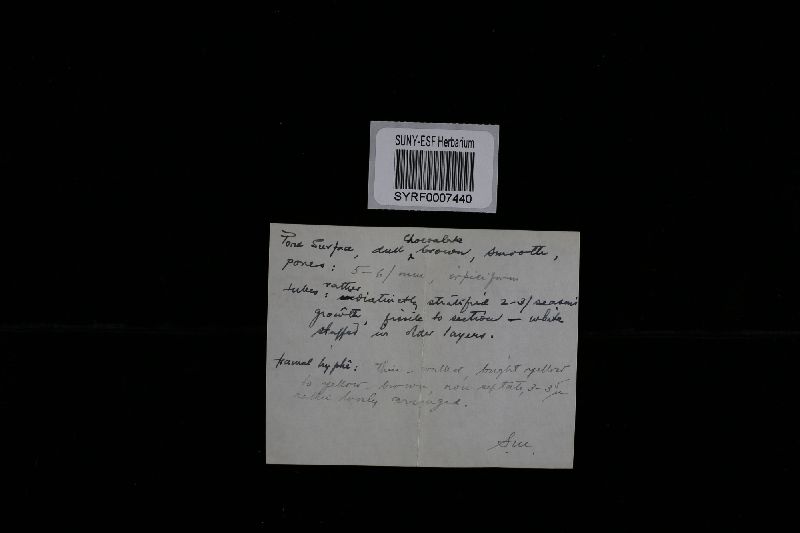 SUNY-ESF Herbarium
SYRF0007440
Chocolate
Pore Surface, dull ^ brown, smooth,
pores: 5-6/mm,
rather
tubes: distinctly stratified 2-3/season's
growth, to section - white
stuffed in older layers.
tramal hyphe: thin-walled, bright yellow
to yellow brown, non septate, 3-3.5 u
rather arranged.